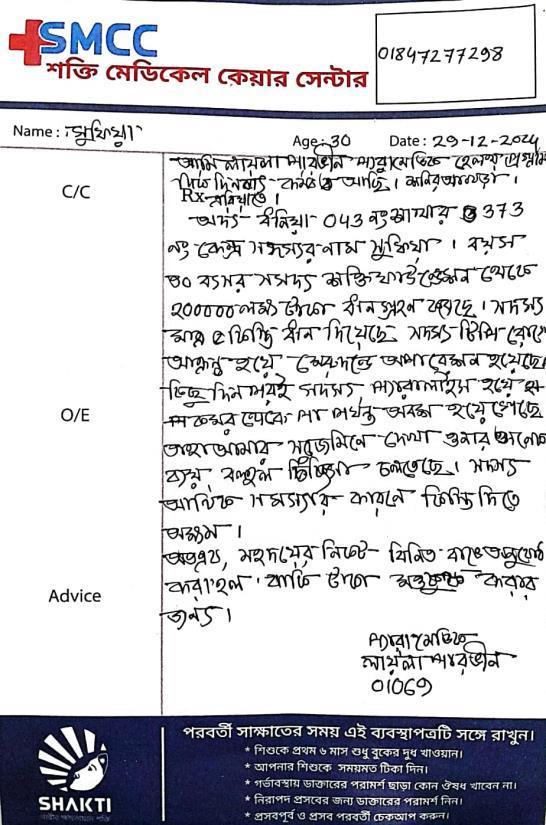 SMCC
শক্তি মেডিকেল কেয়ার সেন্টার
01847277298
Name: সুফিয়া
Age: 30 Date: 29-12-2024
আমি লায়লা পারভীন প্যারামেডিক হেলথ প্রোগ্রাম
C/C
আছি।
Rx
অদ্য 043 নং শাখার 373
নং কেন্দ্র সদস্যর নাম সুফিয়া। বয়স
৩০ বৎসর সদস্য শক্তি ফাউন্ডেশন থেকে
200000 লক্ষ টাকা গ্রহন করেছে। সদস্য
মাত্র কিস্তি দিয়েছে সদস্য টিবি রোগে
আক্রান্ত হয়ে মেরুদন্ডে অপারেশন হয়েছে।
কিছু দিন পরই সদস্য প্যারালাইস হয়ে
O/E
কমর থেকে পা পর্যন্ত অবশ হয়ে গেছে
তাহা আমার সরেজমিনে দেখা ওনার অনেক
ব্যয় বহুল চিকিৎসা চলতেছে। সদস্য
আর্থিক সমস্যার কারণে কিস্তি দিতে
অক্ষম।
অতএব, মহদয়ের নিকট বিনিত
করা হল বাকি টাকা মওকুফ করার
Advice
জন্য।
প্যারামেডিক
লায়লা পারভীন
01069
পরবর্তী সাক্ষাতের সময় এই ব্যবস্থাপত্রটি সঙ্গে রাখুন।
* শিশুকে প্রথম ৬ মাস শুধু বুকের দুধ খাওয়ান।
* আপনার শিশুকে সময়মত টিকা দিন।
* গর্ভাবস্থায় ডাক্তারের পরামর্শ ছাড়া কোন ঔষধ খাবেন না।
* নিরাপদ প্রসবের জন্য ডাক্তারের পরামর্শ নিন।
* প্রসবপূর্ব ও প্রসব পরবর্তী চেকআপ করুন।
SHAKTI